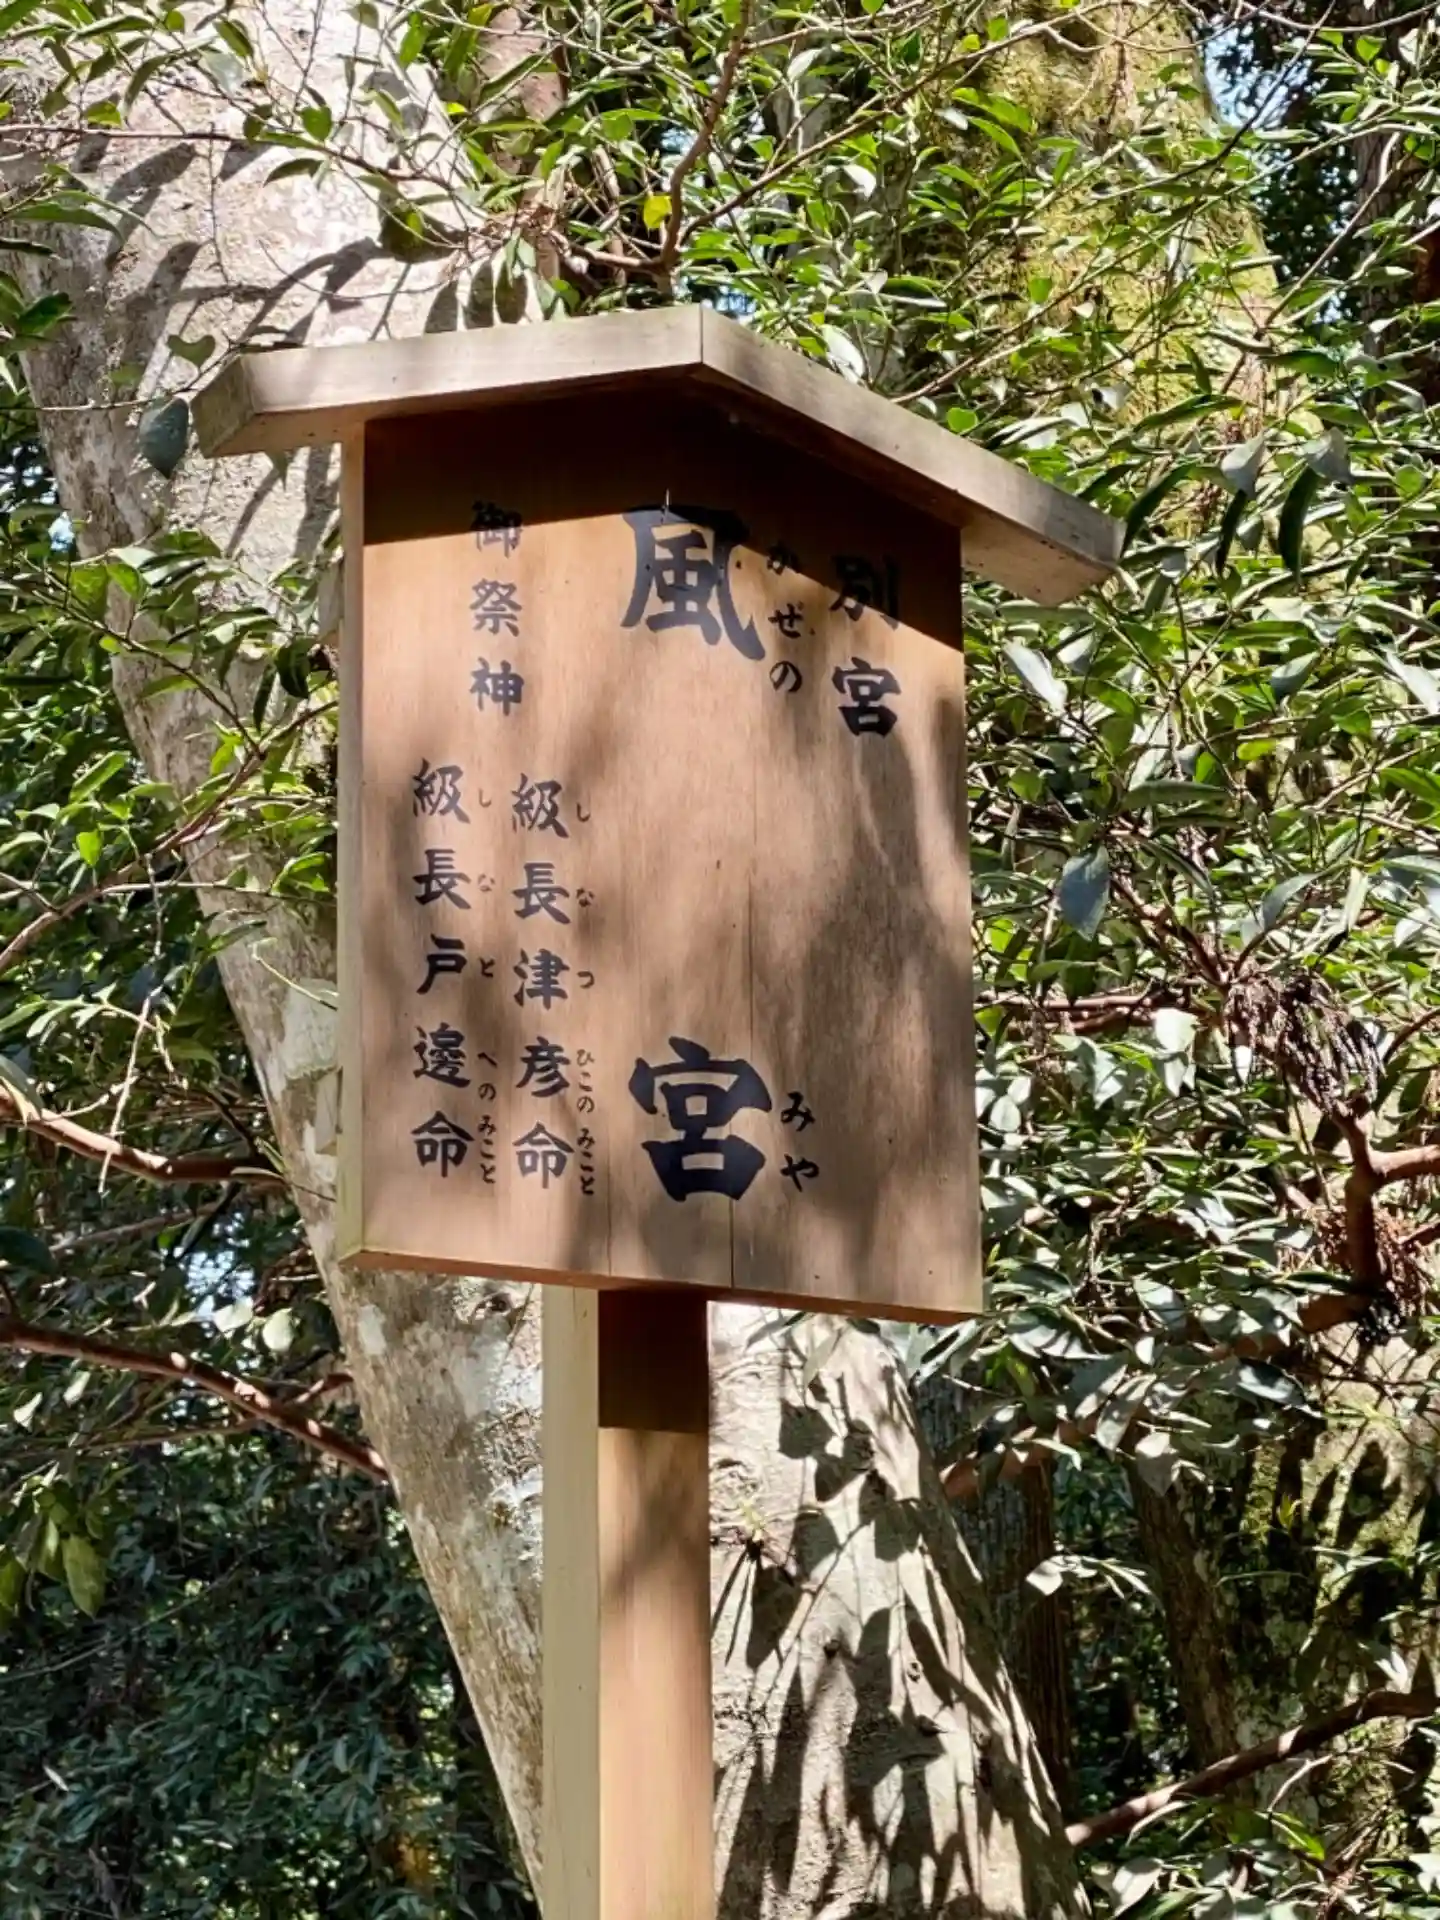 別宮
風宮
かぜのみや
御祭神
級長津彦命
しなつひこのみこと
級長戸邊命
しなとへのみこと